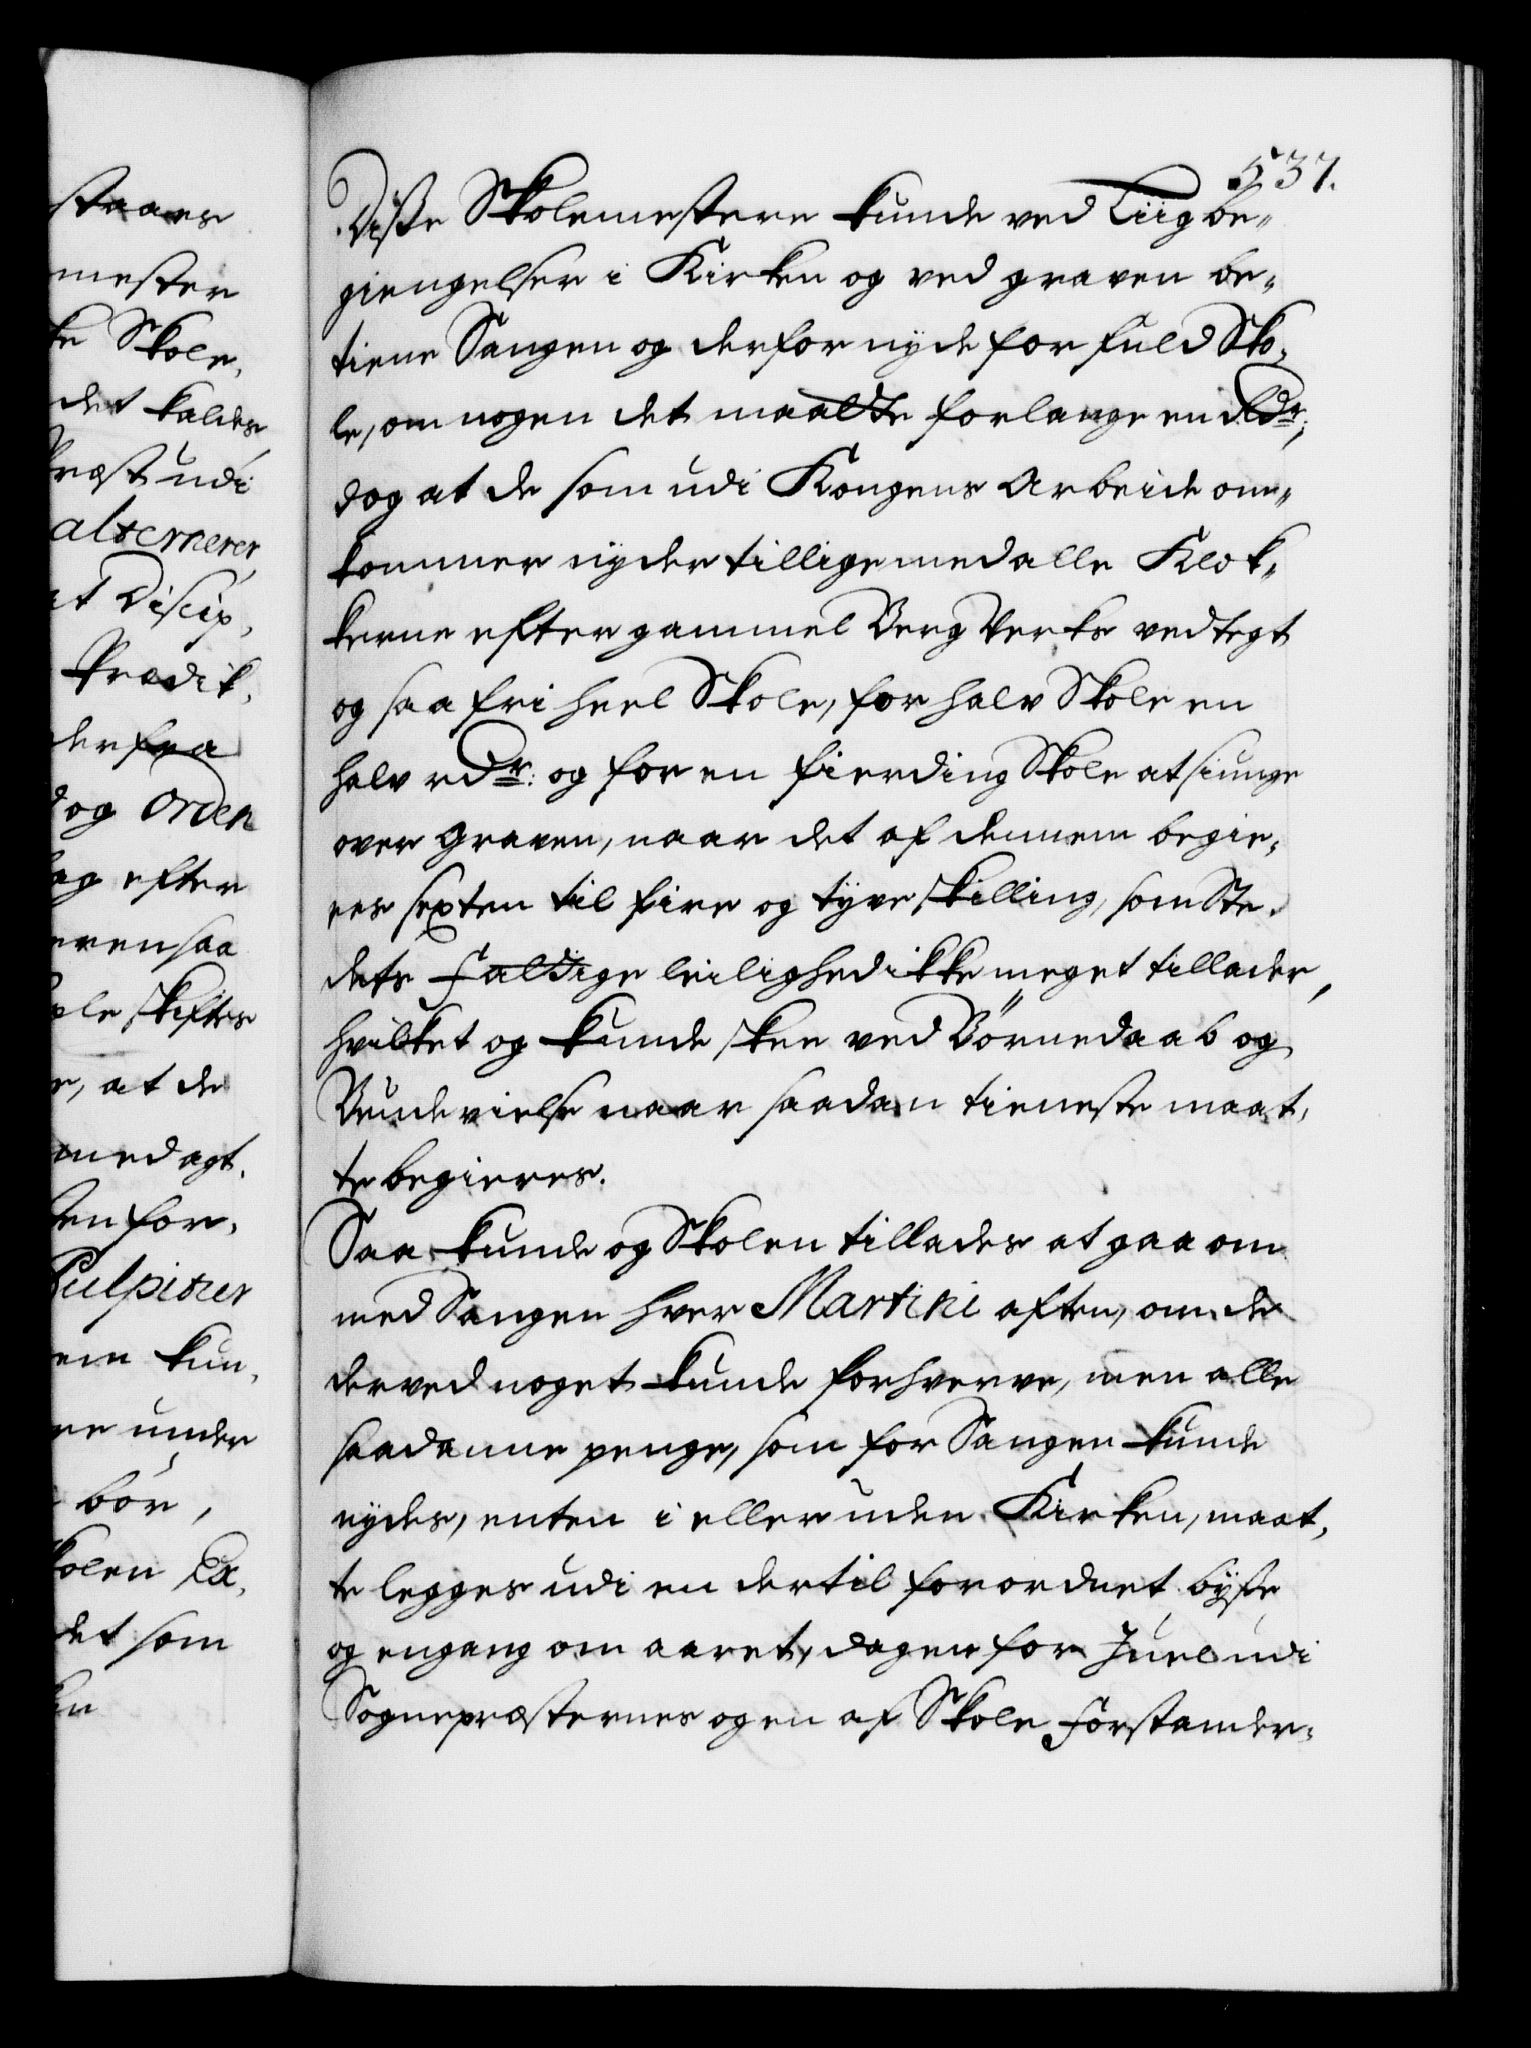 537.
Disse Skolemestere kunde ved Liigbe„
giengelser i Kirken og ved graven be„
tiene Sangen og derfor nyde for fuld Sko„
le, om nogen det maatte forlange en Rdr;
dog at de som udi Kongens Arbeide om„
kommer nyder tillige med alle Klok„
kerne efter gammel Berg Verks vedtegt
og saa fri heel Skole, for halv Skole en
halv rdr: og for en fierding Skole at siunge
over graven, naar det af dennem begie„
res sexten til fire og tyve skilling, som Ste„
dets fattige leilighed ikke meget tillader,
hvilket og kunde skee ved Börnedaab og
Brudevielse naar saadan tieneste maat„
te begieres.
Saa kunde og Skolen tillades at gaa om
med Sangen hver Martini aften, om de
derved noget kunde forhverve, men alle
saadanne penge, som for Sangen kunde
nydes, enten i eller uden Kirken, maat„
te legges udi en dertil forordnet bysse
og engang om aaret, dagen for Juel udi
Sognepræsternes og en af Skole forstander„
staaes
mester
ke Skole„
det kaldes
Præst udi
alternerer
at Discip„
Prædik„
derfra
dog Orden
dag efter
ole skiftes
e, at de
med agt„
ten for„
Pulpitur
em kun„
re under
bör,
kolen Ex„
det som